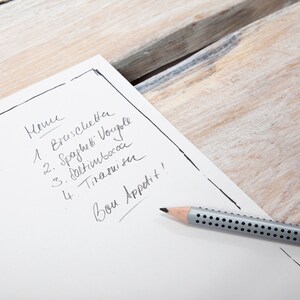 Menu
1. Bruschetta
2. Spaghetti Vongole
3. Saltimbocca
4. Tiramisu
Bon Appetit!